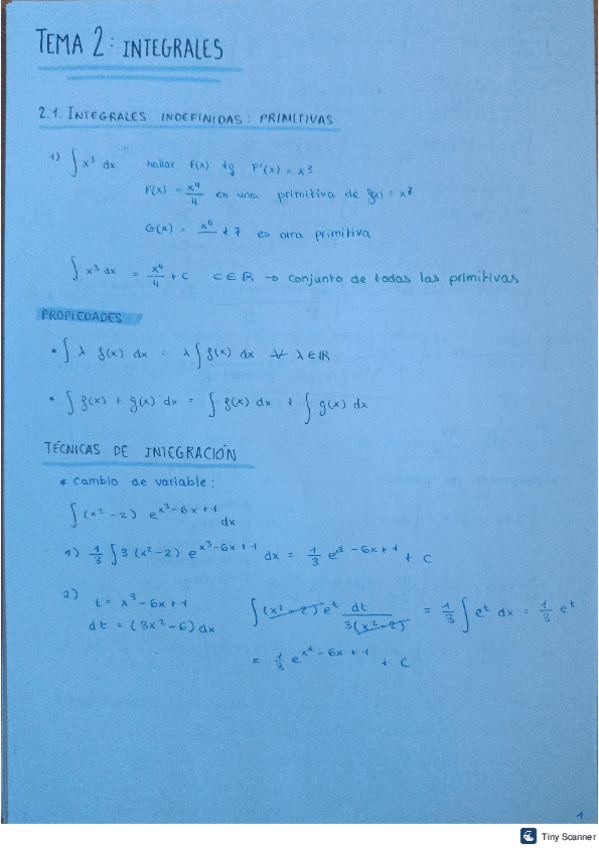 TEMA 2: INTEGRALES
2.1. INTEGRALES INDEFINIDAS: PRIMITIVAS
1) ∫ x³ dx hallar F(x) tq F'(x) = x³
F(x) = x⁴/4 es una primitiva de f(x) = x³
G(x) = x⁴/4 + 7 es otra primitiva
∫ x³ dx = x⁴/4 + C C ∈ ℝ → conjunto de todas las primitivas
PROPIEDADES
• ∫ λ f(x) dx = λ ∫ f(x) dx ∀ λ ∈ ℝ
• ∫ f(x) + g(x) dx = ∫ f(x) dx + ∫ g(x) dx
TÉCNICAS DE INTEGRACIÓN
* cambio de variable:
∫ (x² - 2) e^(x³ - 6x + 1) dx
1) 1/3 ∫ 3 (x² - 2) e^(x³ - 6x + 1) dx = 1/3 e^(x³ - 6x + 1) + C
2) t = x³ - 6x + 1 ∫ (x² - 2) e^t dt / 3(x² - 2) = 1/3 ∫ e^t dx = 1/3 e^t
dt = (3x² - 6) dx
= 1/3 e^(x³ - 6x + 1) + C
1
Tiny Scanner